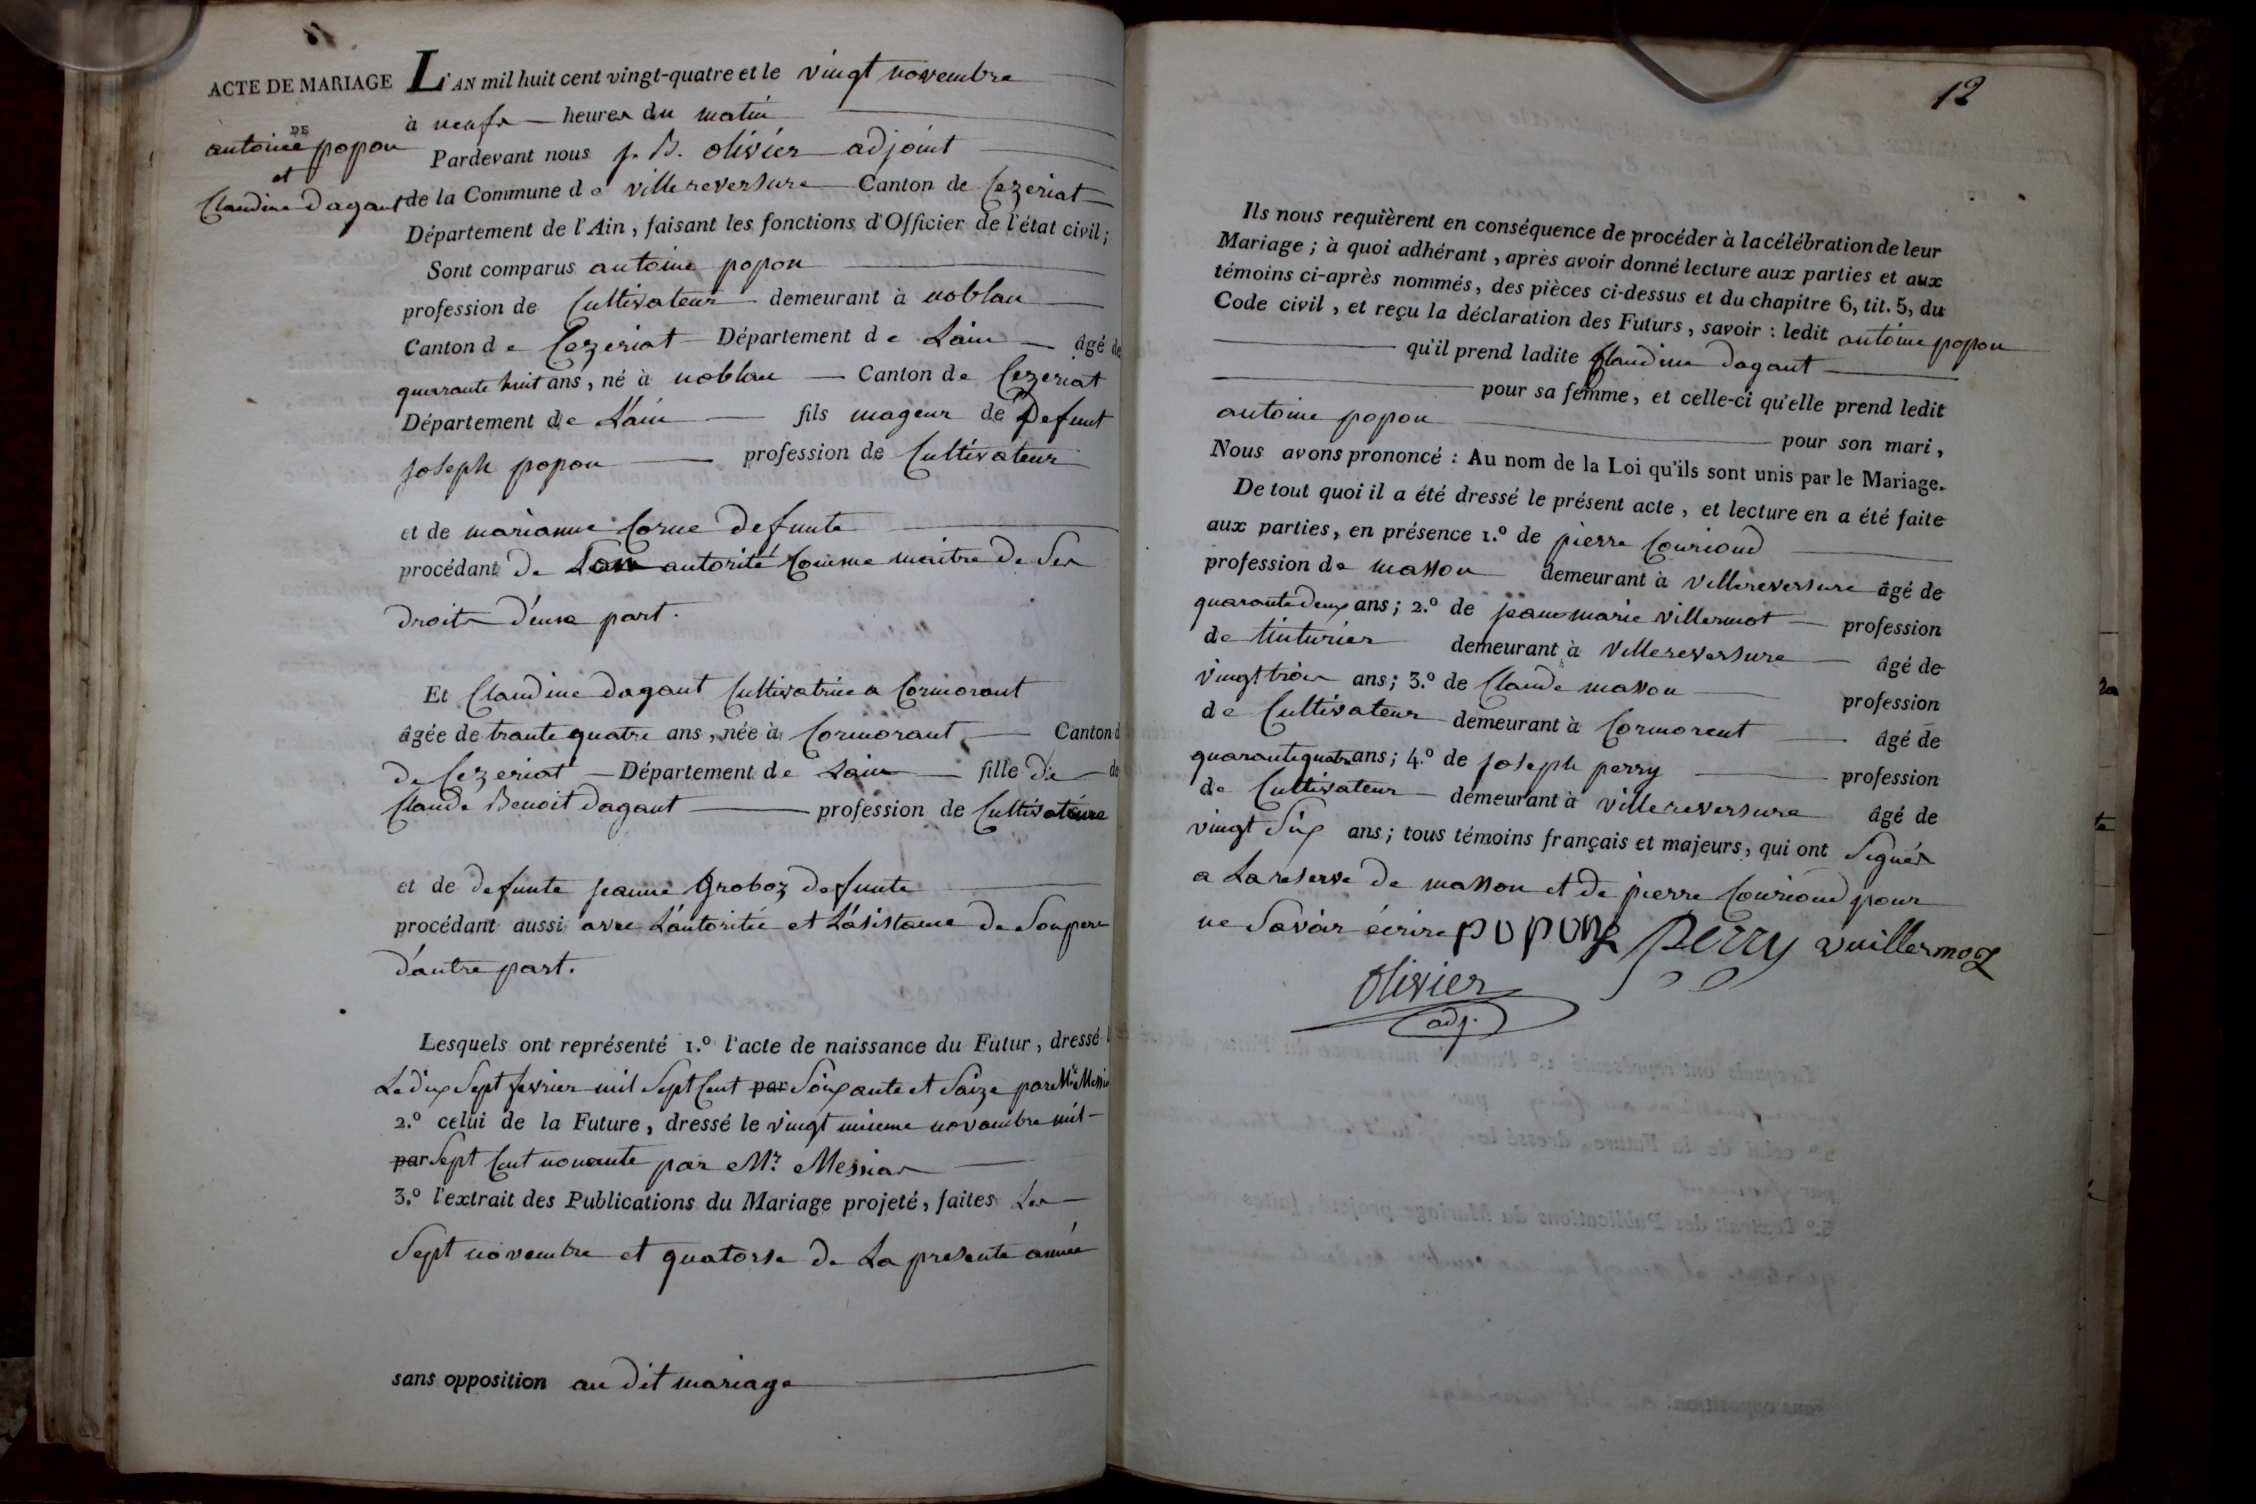 ACTE DE MARIAGE
DE
antoine popon
et
Claudine dagant
L'AN mil huit cent vingt-quatre et le vingt novembre
à neufs heures du matin
Pardevant nous j. B. olivier adjoint
de la Commune de villereversure Canton de Cezeriat
Département de l'Ain, faisant les fonctions d'Officier de l'état civil;
Sont comparus antoine popon
profession de Cultivateur demeurant à noblan
Canton de Cezeriat Département de Lain âgé de
quarante huit ans, né à noblan Canton de Cezeriat
Département de L'ain fils mageur de Defunt
joseph popon profession de Cultivateur
et de marianne Corne defunte
procédant de Son autorité Comme maitre de Ses
droits d'eune part.
Et Claudine dagant Cultivatrice a Cormorant
âgée de trante quatre ans, née à Cormorant Canton d
de Cezeriat Département de Lain fille de de
Claude Benoit dagant profession de Cultivateure
et de defunte jeanne Groboz defunte
procédant aussi avec L'autoritée et L'asistance de Son pere
d'autre part.
Lesquels ont représenté 1.º l'acte de naissance du Futur, dressé l
Le dix Sept fevrier mil Sept Cent par Soixante et Saize par Mr Messia
2.º celui de la Future, dressé le vingt unieme novembre mil
par Sept Cent nonante par Mr. Messias
3.º l'extrait des Publications du Mariage projeté, faites Les
Sept novembre et quatorse de La presente année
sans opposition au dit mariage
12
Ils nous requièrent en conséquence de procéder à la célébration de leur
Mariage; à quoi adhérant, après avoir donné lecture aux parties et aux
témoins ci-après nommés, des pièces ci-dessus et du chapitre 6, tit. 5, du
Code civil, et reçu la déclaration des Futurs, savoir: ledit antoine popon
qu'il prend ladite Claudine dagant
pour sa femme, et celle-ci qu'elle prend ledit
antoine popon pour son mari,
Nous avons prononcé: Au nom de la Loi qu'ils sont unis par le Mariage.
De tout quoi il a été dressé le présent acte, et lecture en a été faite
aux parties, en présence 1.º de pierre Courioud
profession de masson demeurant à villereversure âgé de
quarante deux ans; 2.º de jean marie villermot profession
de tinturier demeurant à villereversure âgé de
vingt trois ans; 3.º de Claude masson profession
de Cultivateur demeurant à Cormorent âgé de
quarante quatre ans; 4.º de joseph perry profession
de Cultivateur demeurant à villereversure âgé de
vingt Six ans; tous témoins français et majeurs, qui ont Signés
a La reserve de masson et de pierre Courioud pour
ne Savoir écrire popon perry vuillermoz
olivier
adj.